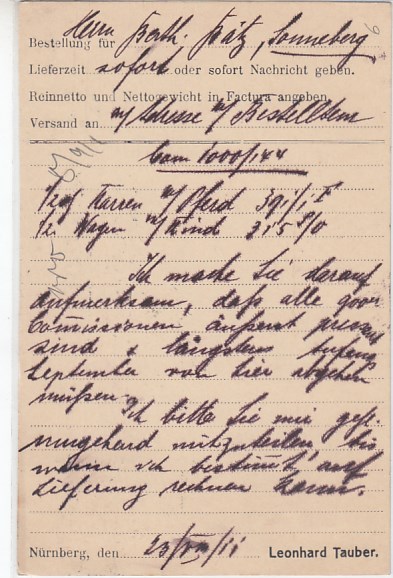 Bestellung für Herrn Berth. Pätz, Sonneberg
Lieferzeit sofort oder sofort Nachricht geben.
Reinnetto und Nettogewicht in Factura angeben.
Versand an m/ Adresse m/ Bestelltem
Com 1000/144
1/2 Karren m/ Pferd 391/1
1/2 Wagen m/ Kind 315 %
Ich mache Sie darauf
aufmerksam, daß alle
Commissionen äußerst pressant
sind & längstens Anfang
September von hier abgehen
müssen.
Ich bitte Sie mir gefl.
umgehend mitzuteilen, bis
wann ich bestimmt auf
Lieferung rechnen kann.
Nürnberg, den 23/VIII/11 Leonhard Tauber.